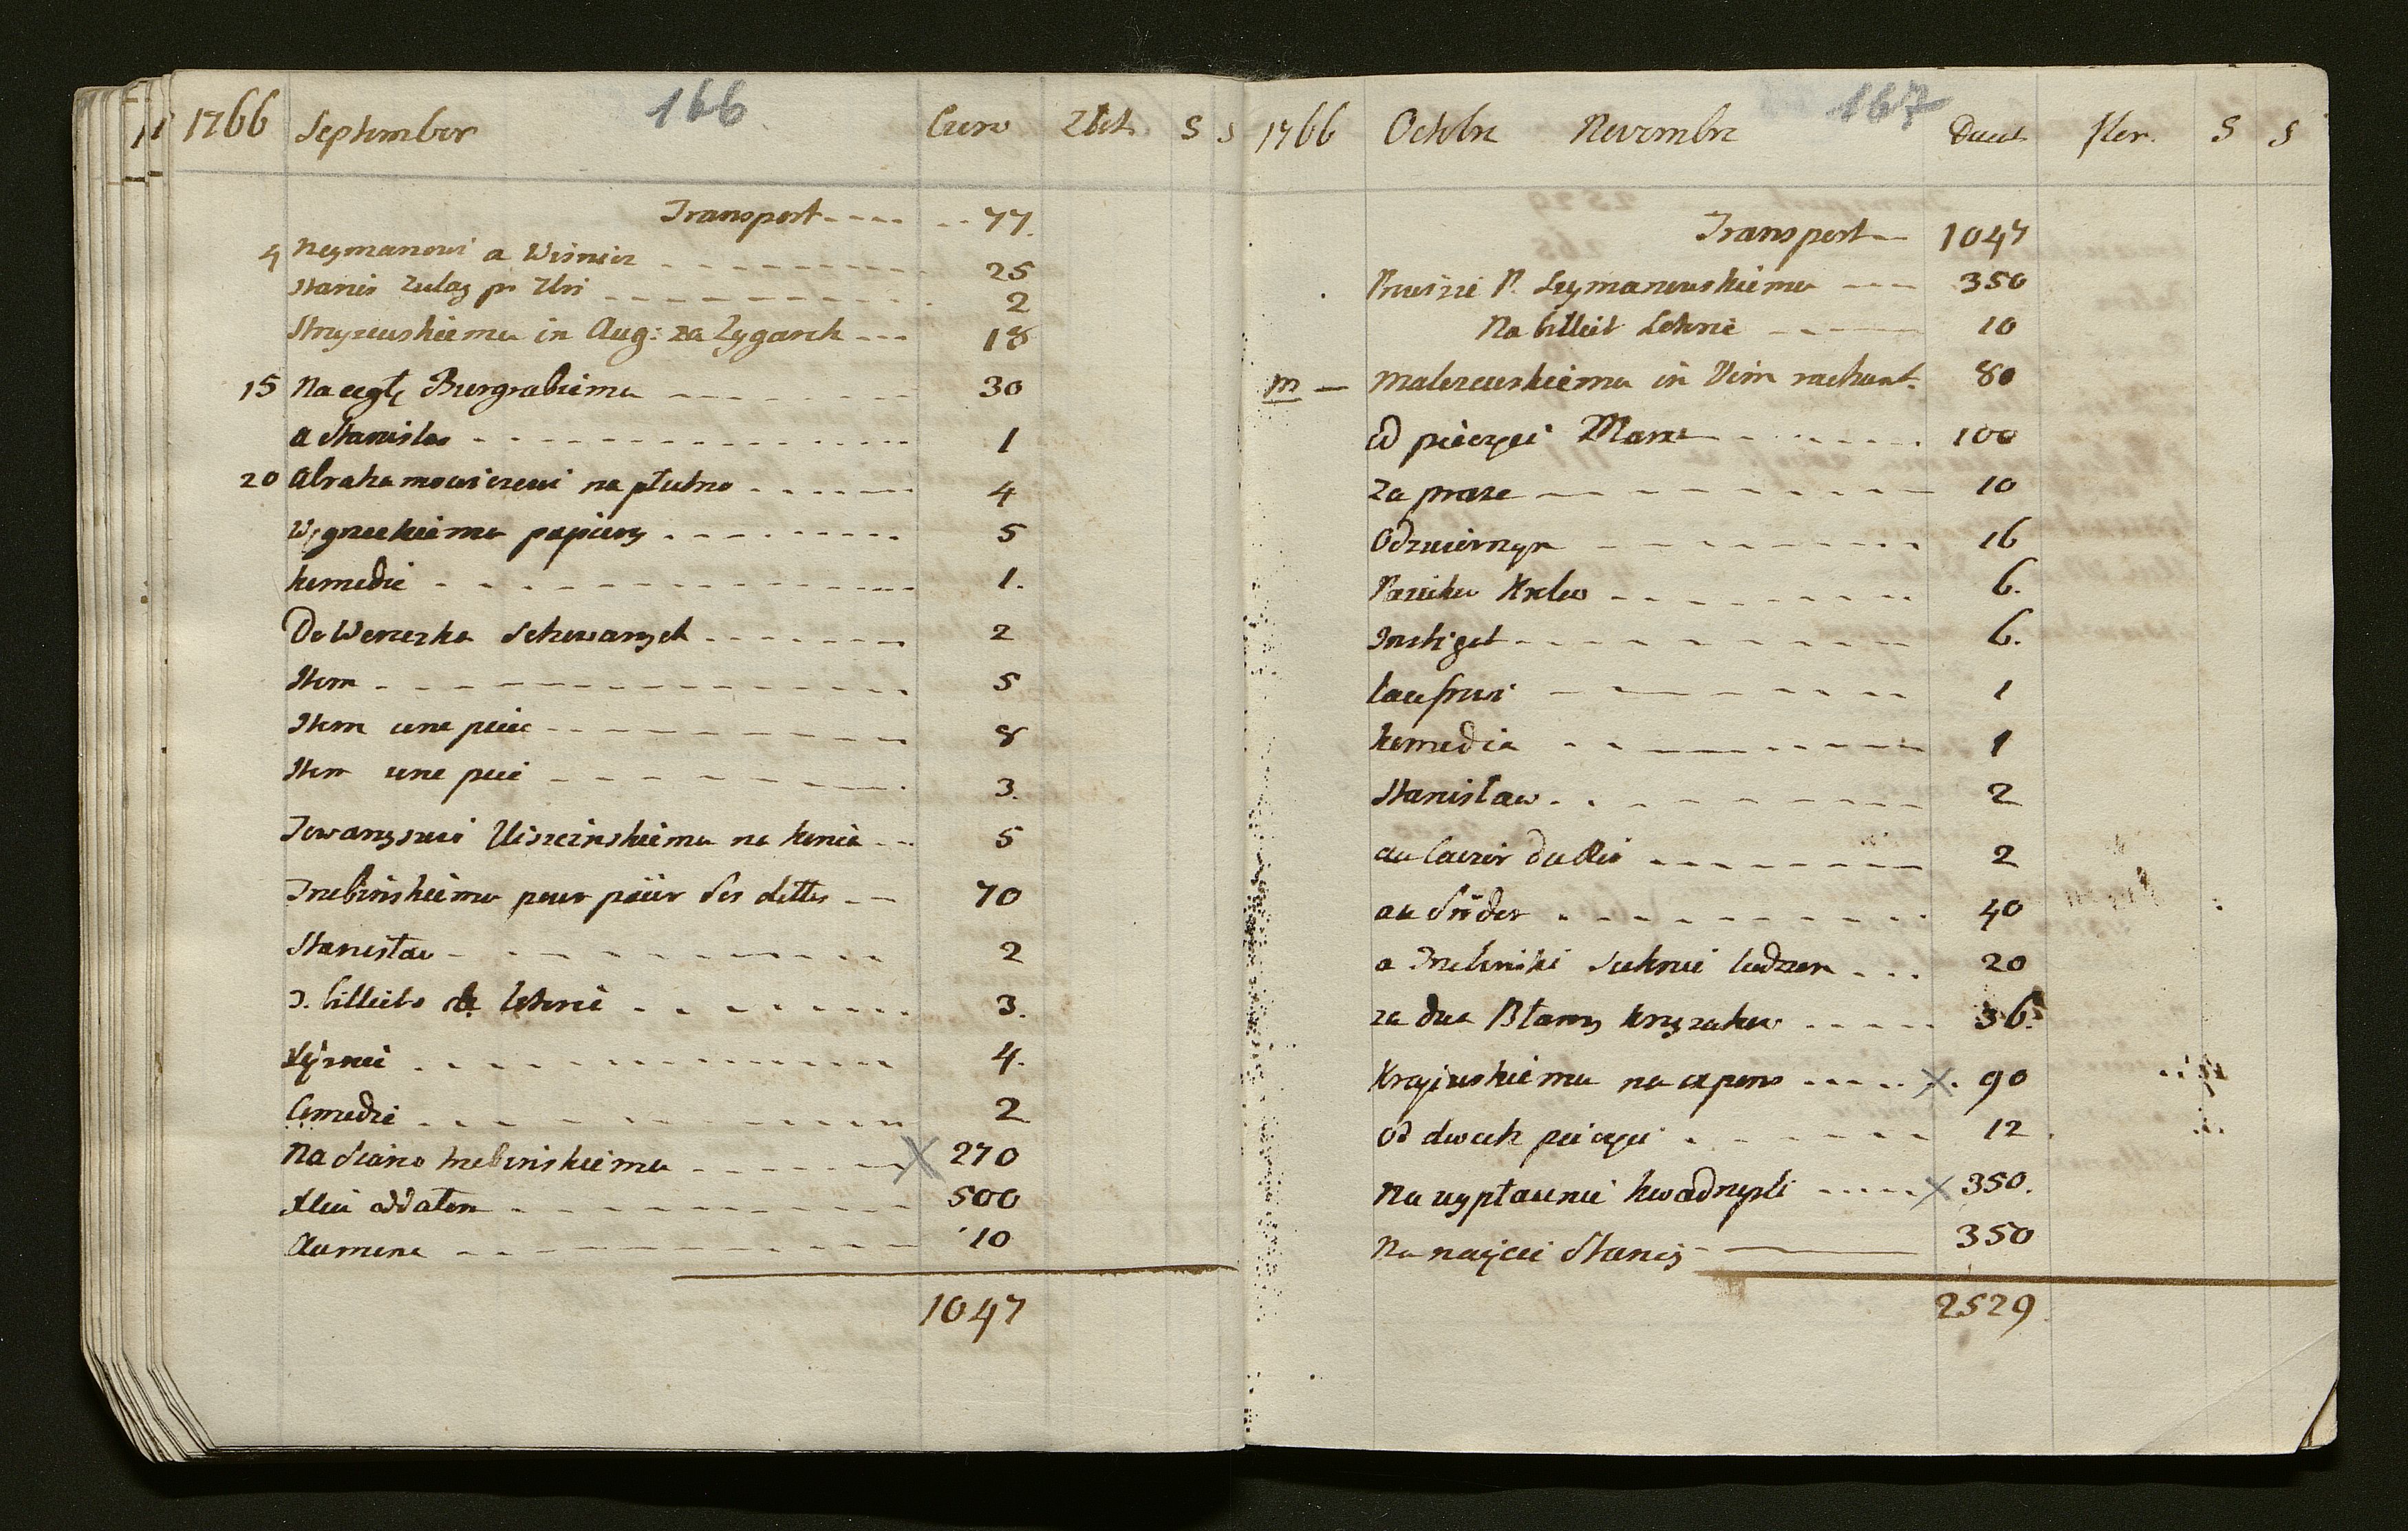 1766 September 166 Curo Zlot. S S
Transport 77.
4 Neymanowi a Wisnicz 25
Stanis Zulag pr Zlri 2
Stryzewskiemu in Aug: za Zygarek 18
15 Na cegłę Burgrabiemu 30
a Stanislao 1
20 Abrahamowiczowi na płutno 4
Węgrzeckiemu papiery 5
komedie 1.
Do Woreczka Schowanych 2
Item 5
Item une piece 8
Item une piece 3.
Towarzyszwi Uiszczinskiemu na konia 5
Trebinskiemu pour païer ses dettes 70
Stanisław 2
3. billiets de loterie 3.
4.
Comedie 2
Na siano trebinskiemu 270
oddałem 500
Aumone 10
1047
1766 Octobre Novembre 167 Ducat. S S
Transport 1047
P. Szymanowskiemu 350
Na billiet Loterie 10
m Maleszewskiemu in Vim rachunt. 80
od pieczęci 100
Za prace 10
Odzwiernym 16
Krolew 6.
Instigat 6.
laufrowi 1
komedia 1
Stanisław 2
au Courir du Roi 2
au 40
a Trebinski suknie ludziom 20
za dwa Błamy krzyzakow 36.
Krajewskiemu na expens 90
od dwoch pieczęci 12
Na wypłacenie kwadrygli 350.
Na najęcie Stancij 350
2529